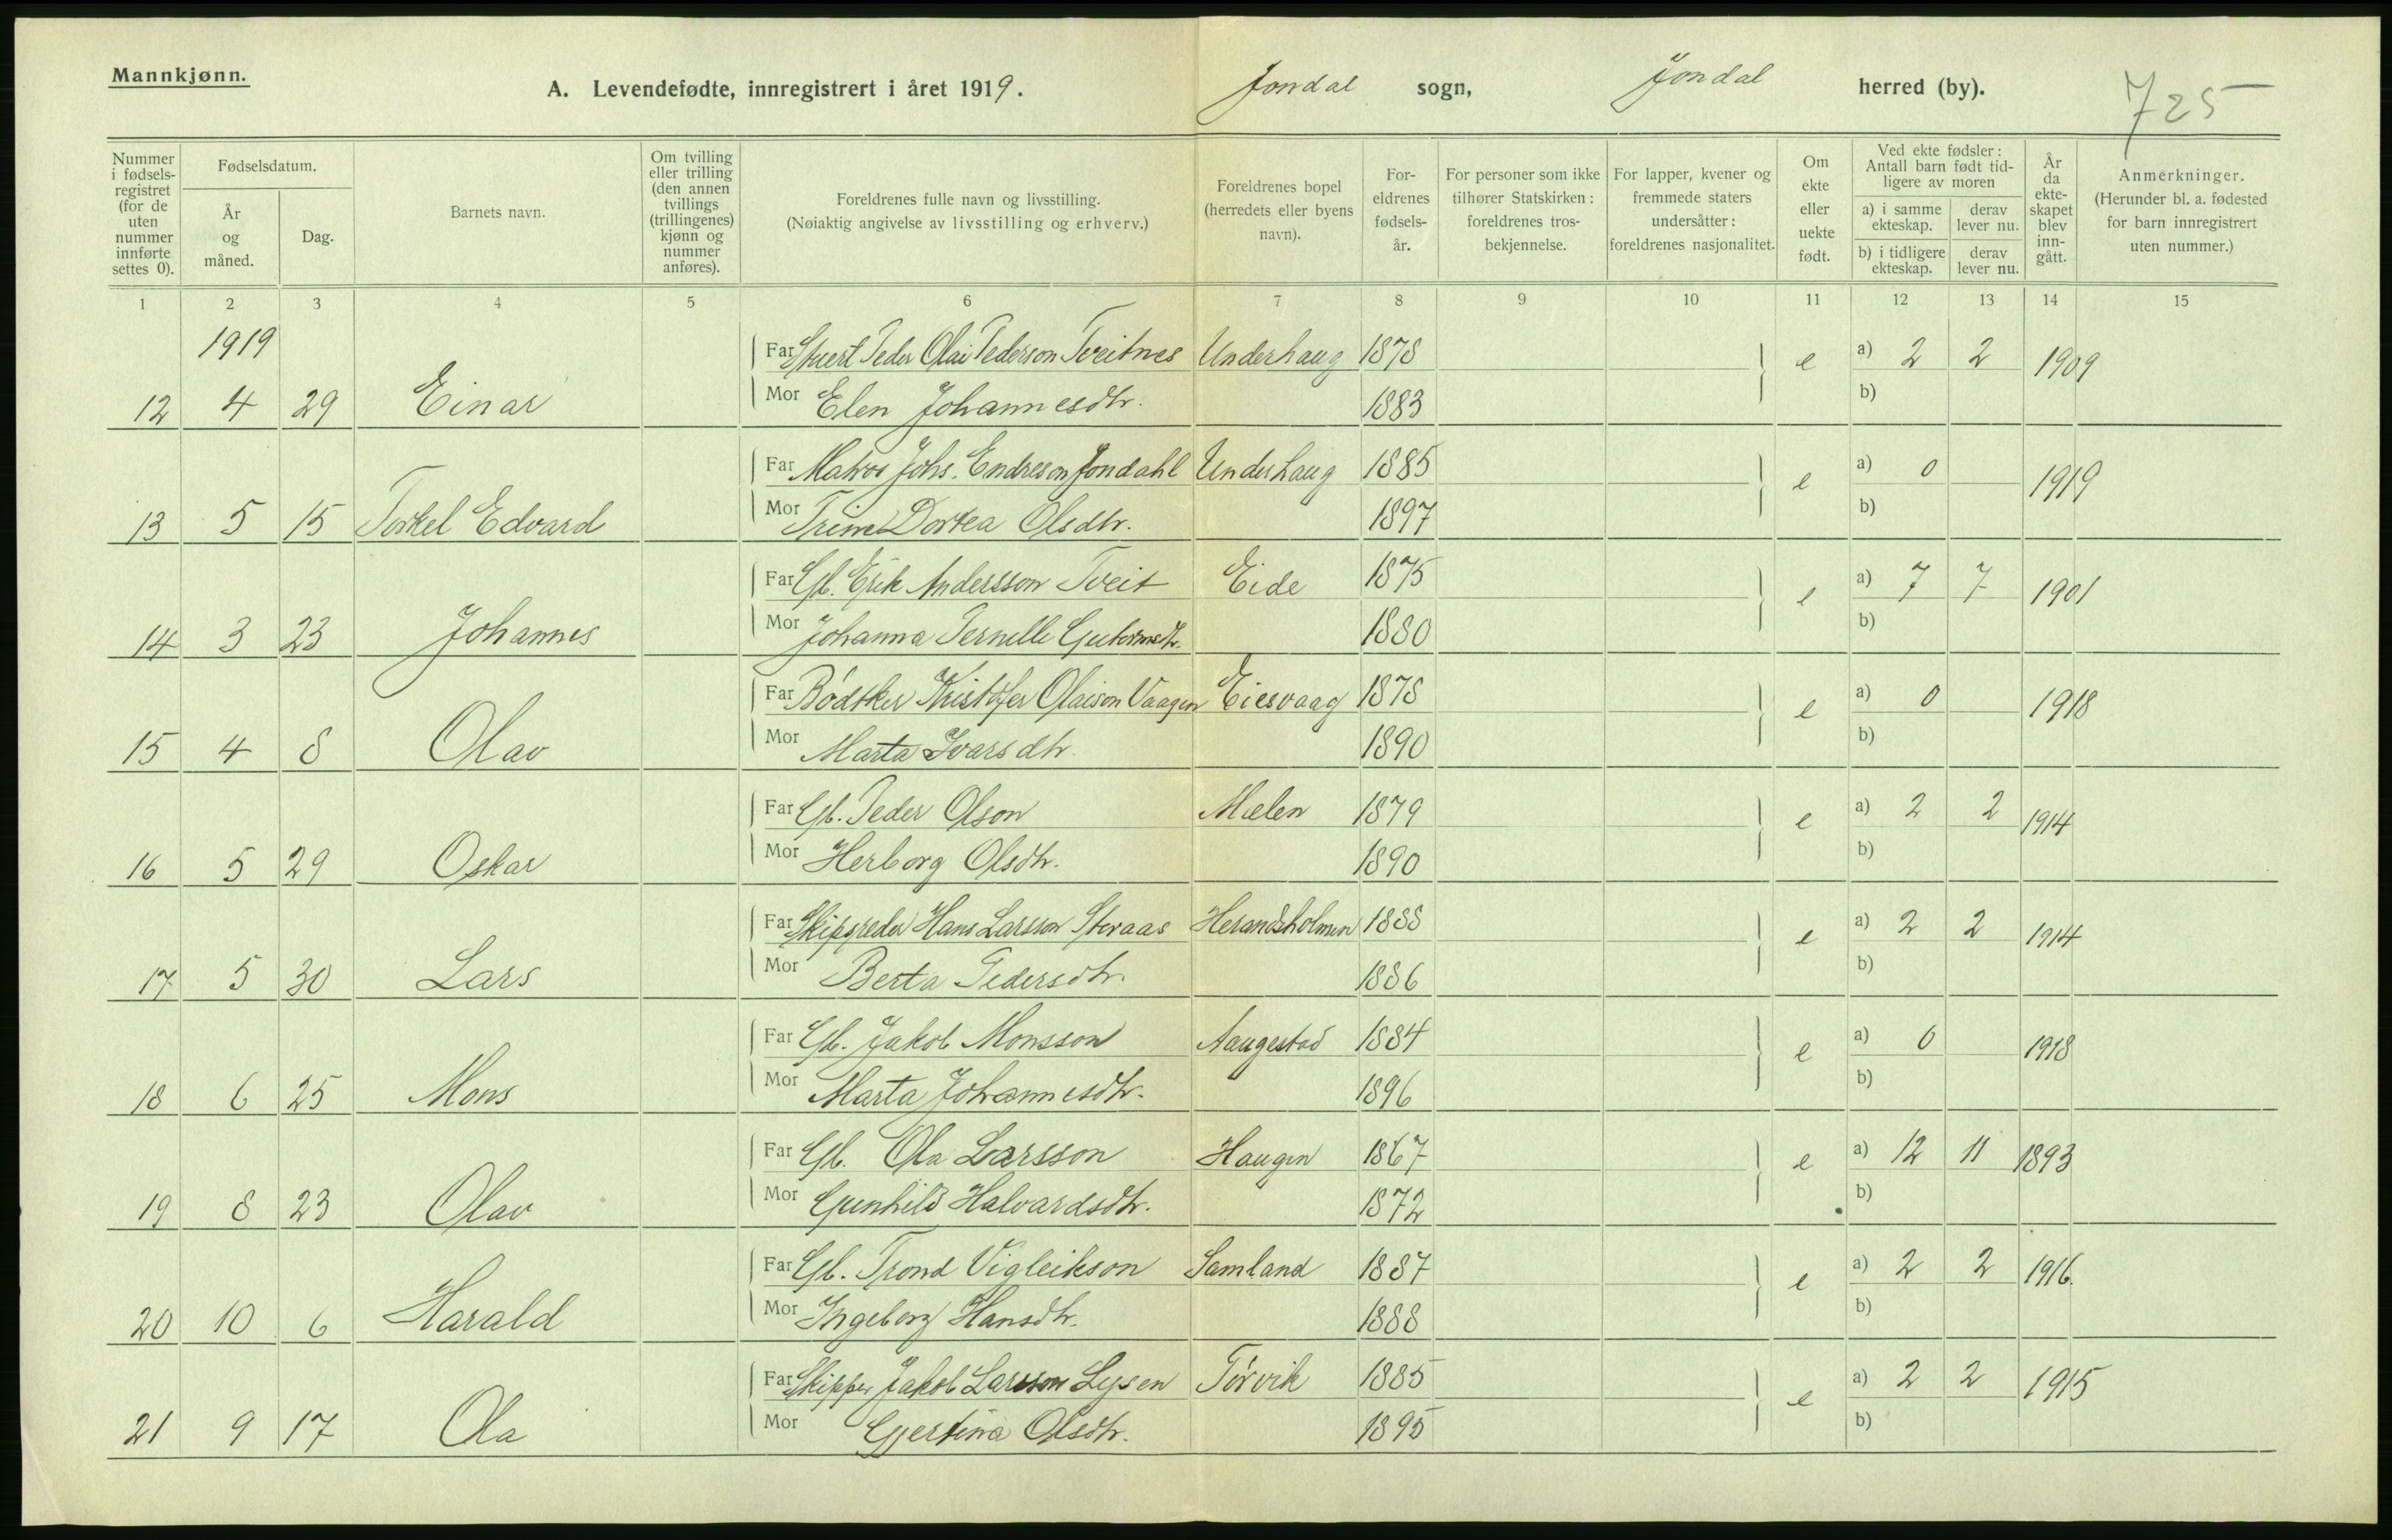 Mannkjønn.
A. Levendefødte, innregistrert i året 1919. Jondal sogn, Jondal herred (by). 725
Nummer i fødsels-registret (for de uten nummer innførte settes 0).
Fødselsdatum.
År og måned.
Dag.
Barnets navn.
Om tvilling eller trilling (den annen tvillings (trillingenes) kjønn og nummer anføres).
Foreldrenes fulle navn og livsstilling.
(Nøiaktig angivelse av livsstilling og erhverv.)
Foreldrenes bopel (herredets eller byens navn).
For-eldrenes fødsels-år.
For personer som ikke tilhører Statskirken: foreldrenes tros-bekjennelse.
For lapper, kvener og fremmede staters undersåtter: foreldrenes nasjonalitet.
Om ekte eller uekte født.
Ved ekte fødsler: Antall barn født tid-ligere av moren
a) i samme ekteskap. derav lever nu.
b) i tidligere ekteskap. derav lever nu.
År da ekte-skapet blev inn-gått.
Anmerkninger. (Herunder bl. a. fødested for barn innregistrert uten nummer.)
1 2 3 4 5 6 7 8 9 10 11 12 13 14 15
1919
Far Stuert Peder Olai Pederson Tveitnes Underhaug 1878 e a) 2 2 1909
12 4 29 Einar Mor Elen Johannesdtr. 1883 b)
Far Matros Johs. Endreson Jondahl Underhaug 1885 e a) 0 1919
13 5 15 Torkel Edvard Mor Trine Dortea Olsdtr. 1897 b)
Far Gb. Erik Andersson Tveit Eide 1875 e a) 7 7 1901
14 3 23 Johannes Mor Johanna Pernelle Guttormsdtr. 1880 b)
Far Bødtker Kristofer Olaison Vaagen Eiesvaag 1878 e a) 0 1918
15 4 8 Olav Mor Marta Ivarsdtr. 1890 b)
Far Gb. Peder Olson Mælen 1879 e a) 2 2 1914
16 5 29 Oskar Mor Herborg Olsdtr. 1890 b)
Far Skipsreder Hans Larsson Storaas Herandsholmen 1888 e a) 2 2 1914
17 5 30 Lars Mor Berta Pedersdtr. 1886 b)
Far Gb. Jakob Monsson Aaugestad 1884 e a) 0 1918
18 6 25 Mons Mor Marta Johannesdtr. 1896 b)
Far Gb. Ola Larsson Haugen 1867 e a) 12 11 1893
19 8 23 Olav Mor Gunhild Halvardsdtr. 1872 b)
Far Gb. Trond Vigleikson Samland 1887 e a) 2 2 1916.
20 10 6 Harald Mor Ingeborg Hansdtr. 1888 b)
Far Skipper Jakob Larsson Lysen Torvik 1885 e a) 2 2 1915
21 9 17 Ola Mor Gjertina Olsdtr. 1895 b)